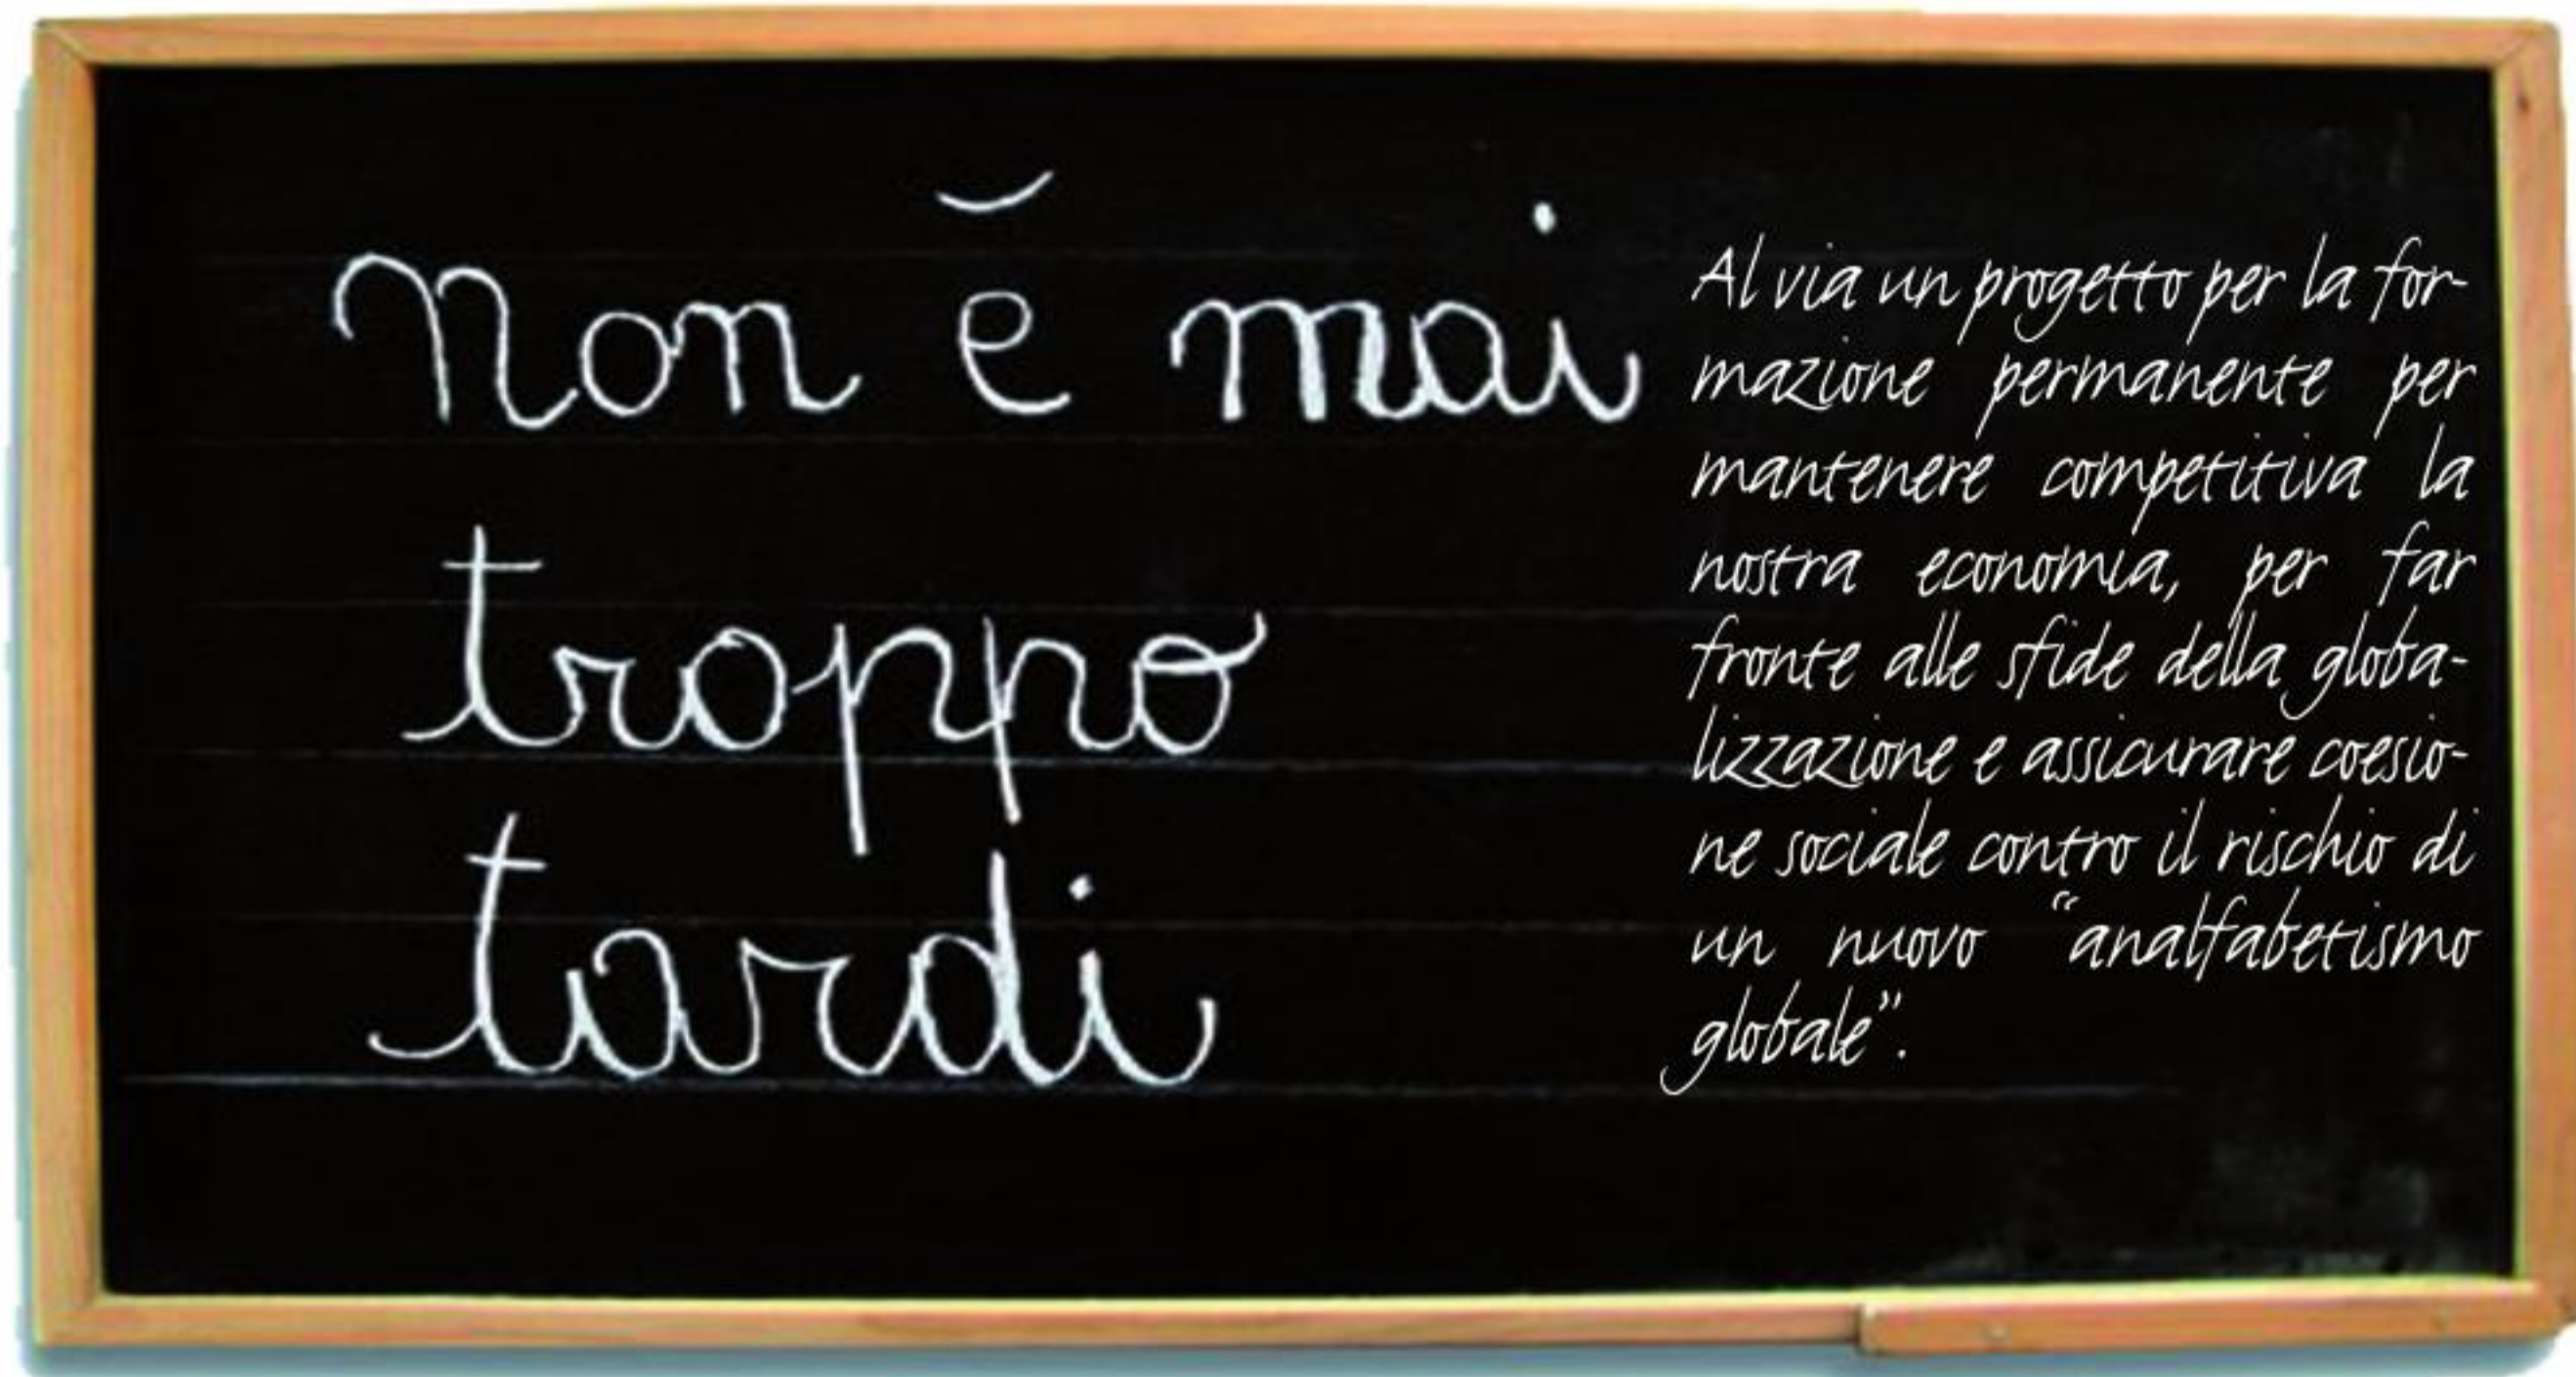 Non è mai
troppo
tardi
Al via un progetto per la for-
mazione permanente per
mantenere competitiva la
nostra economia, per far
fronte alle sfide della globa-
lizzazione e assicurare coesio-
ne sociale contro il rischio di
un nuovo “analfabetismo
globale”.